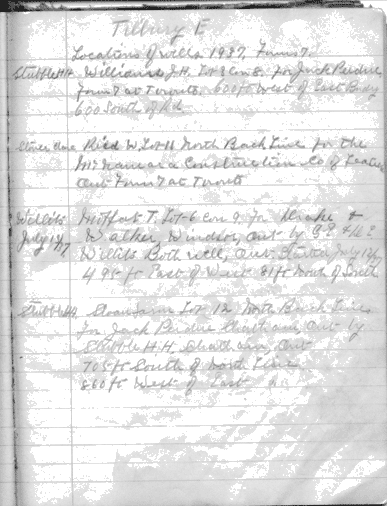 Tilbury E
Locations of wells 1937, Form 7.
Stubble H.H. Williams J.H. Lot 2 Con 8. for Jack Perdue
Form 7 at Toronto. 600 ft West of East Bndy
600 South of Rd
Reid W. Lot 11 North Back Line for the
McNamara Construction Co of
Ont Form 7 at Toronto
Willits Moffat T. Lot 6 con 9. for Drake &
July 12/37 Walker, Windsor, Ont by
Willits Bothwell, Ont. Started July 12/
495 ft East of West 81 ft North of South
Stubble HH. Sloan Sam Lot 12 North Back Line
for Jack Perdue Chatham, Ont by
Stubble H.H. Chatham, Ont
705 ft South of North Line
860 ft West of East